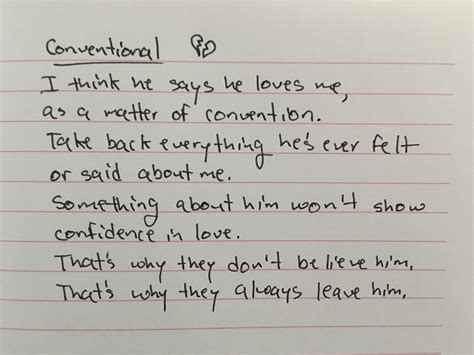 Conventional
I think he says he loves me,
as a matter of convention.
Take back everything he's ever felt
or said about me.
Something about him won't show
confidence in love.
That's why they don't believe him,
That's why they always leave him.